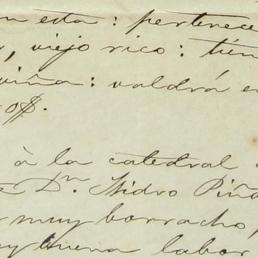 en esta: pertenece
, viejo rico: tien
viña: valdrá e
0$.
à la catedral
e Dn. Isidro Piña
muy borracho,
y buena labor